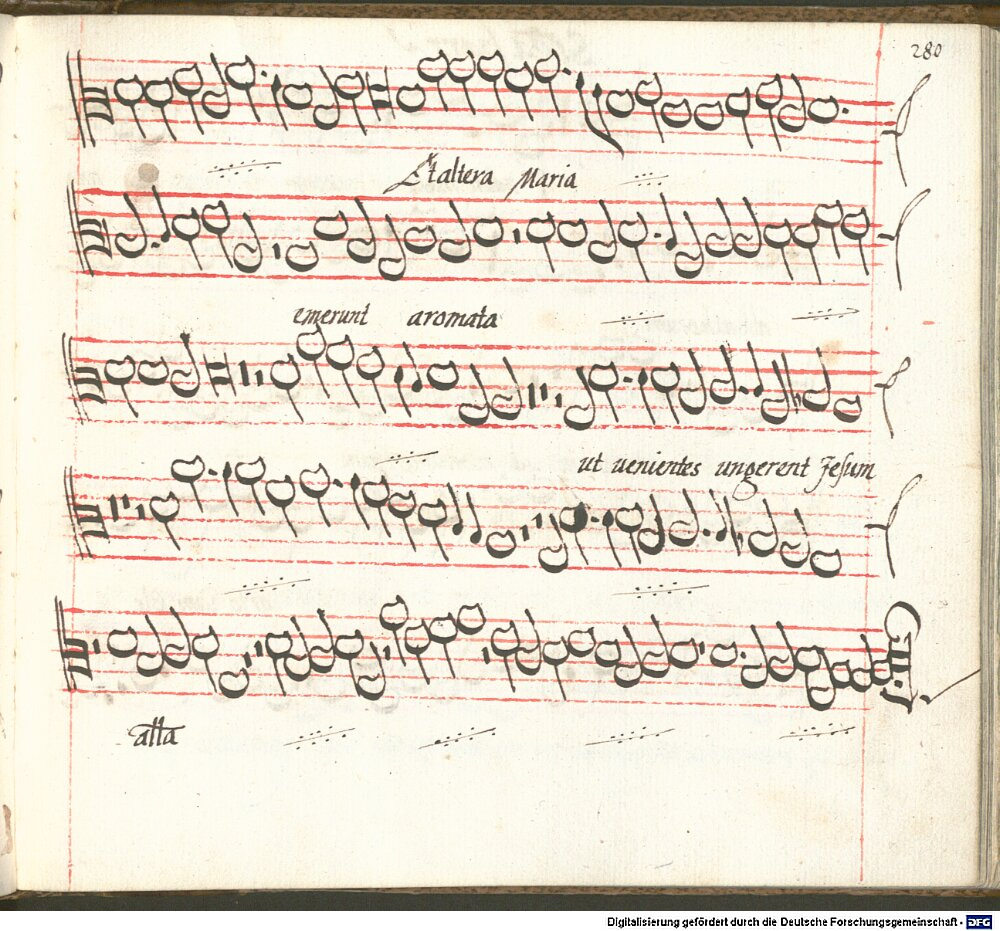 280
Et altera Maria
emerunt aromata
ut uenientes ungerent Jesum
alla
Digitalisierung gefördert durch die Deutsche Forschungsgemeinschaft - DFG